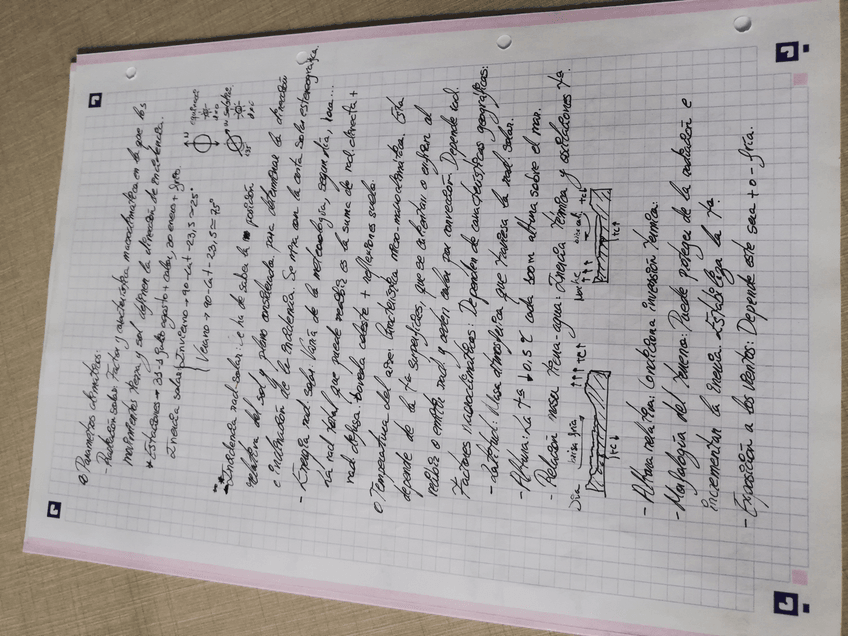 ⊙ Parámetros climáticos:
- Radiación solar: Factor y característica macroclimática en la que los
movimientos tierra y sol definen la dirección de incidencia.
* Estaciones → agosto + calor, enero + frío.
Inercia solar { Invierno → 90 - Lat - 23,5 = 25°
Verano → 90 - Lat + 23,5 = 75°
N
d=0
23,5
- Incidencia rad. solar: se ha de saber la posición
relativa del sol y plano considerado para determinar la dirección
e inclinación de la incidencia. Se mira con la carta solar estereográfica.
- Energía rad. solar: Varía de la meteorología, según día, hora...
La rad. total que puede recibir es la suma de rad. directa +
rad. difusa: bóveda celeste + reflexiones suelo.
⊙ Temperatura del aire: Característica meso-microclimática. Esta
depende de la tª superficies, que se calientan o enfrían al
recibir o emitir rad. y ceden calor por convección. Depende
Factores macroclimáticos: Dependen de características geográficas:
- Latitud: Masa atmosférica que traviesa la rad. solar.
- Altura: La tª ↓ 0,5°C cada 100m altura sobre el mar.
- Relación masa tierra-agua: Inercia térmica y oscilaciones tª.
Día brisa fría ↑↑↑ tc↑ noche tc↓
tc↓ tc↑
- Altura relativa: Condiciona inversión térmica.
- Morfología del terreno: Puede proteger de la radiación e
incrementan la inercia. Estabiliza la tª.
- Exposición a los vientos: Depende este sea + o - fría.